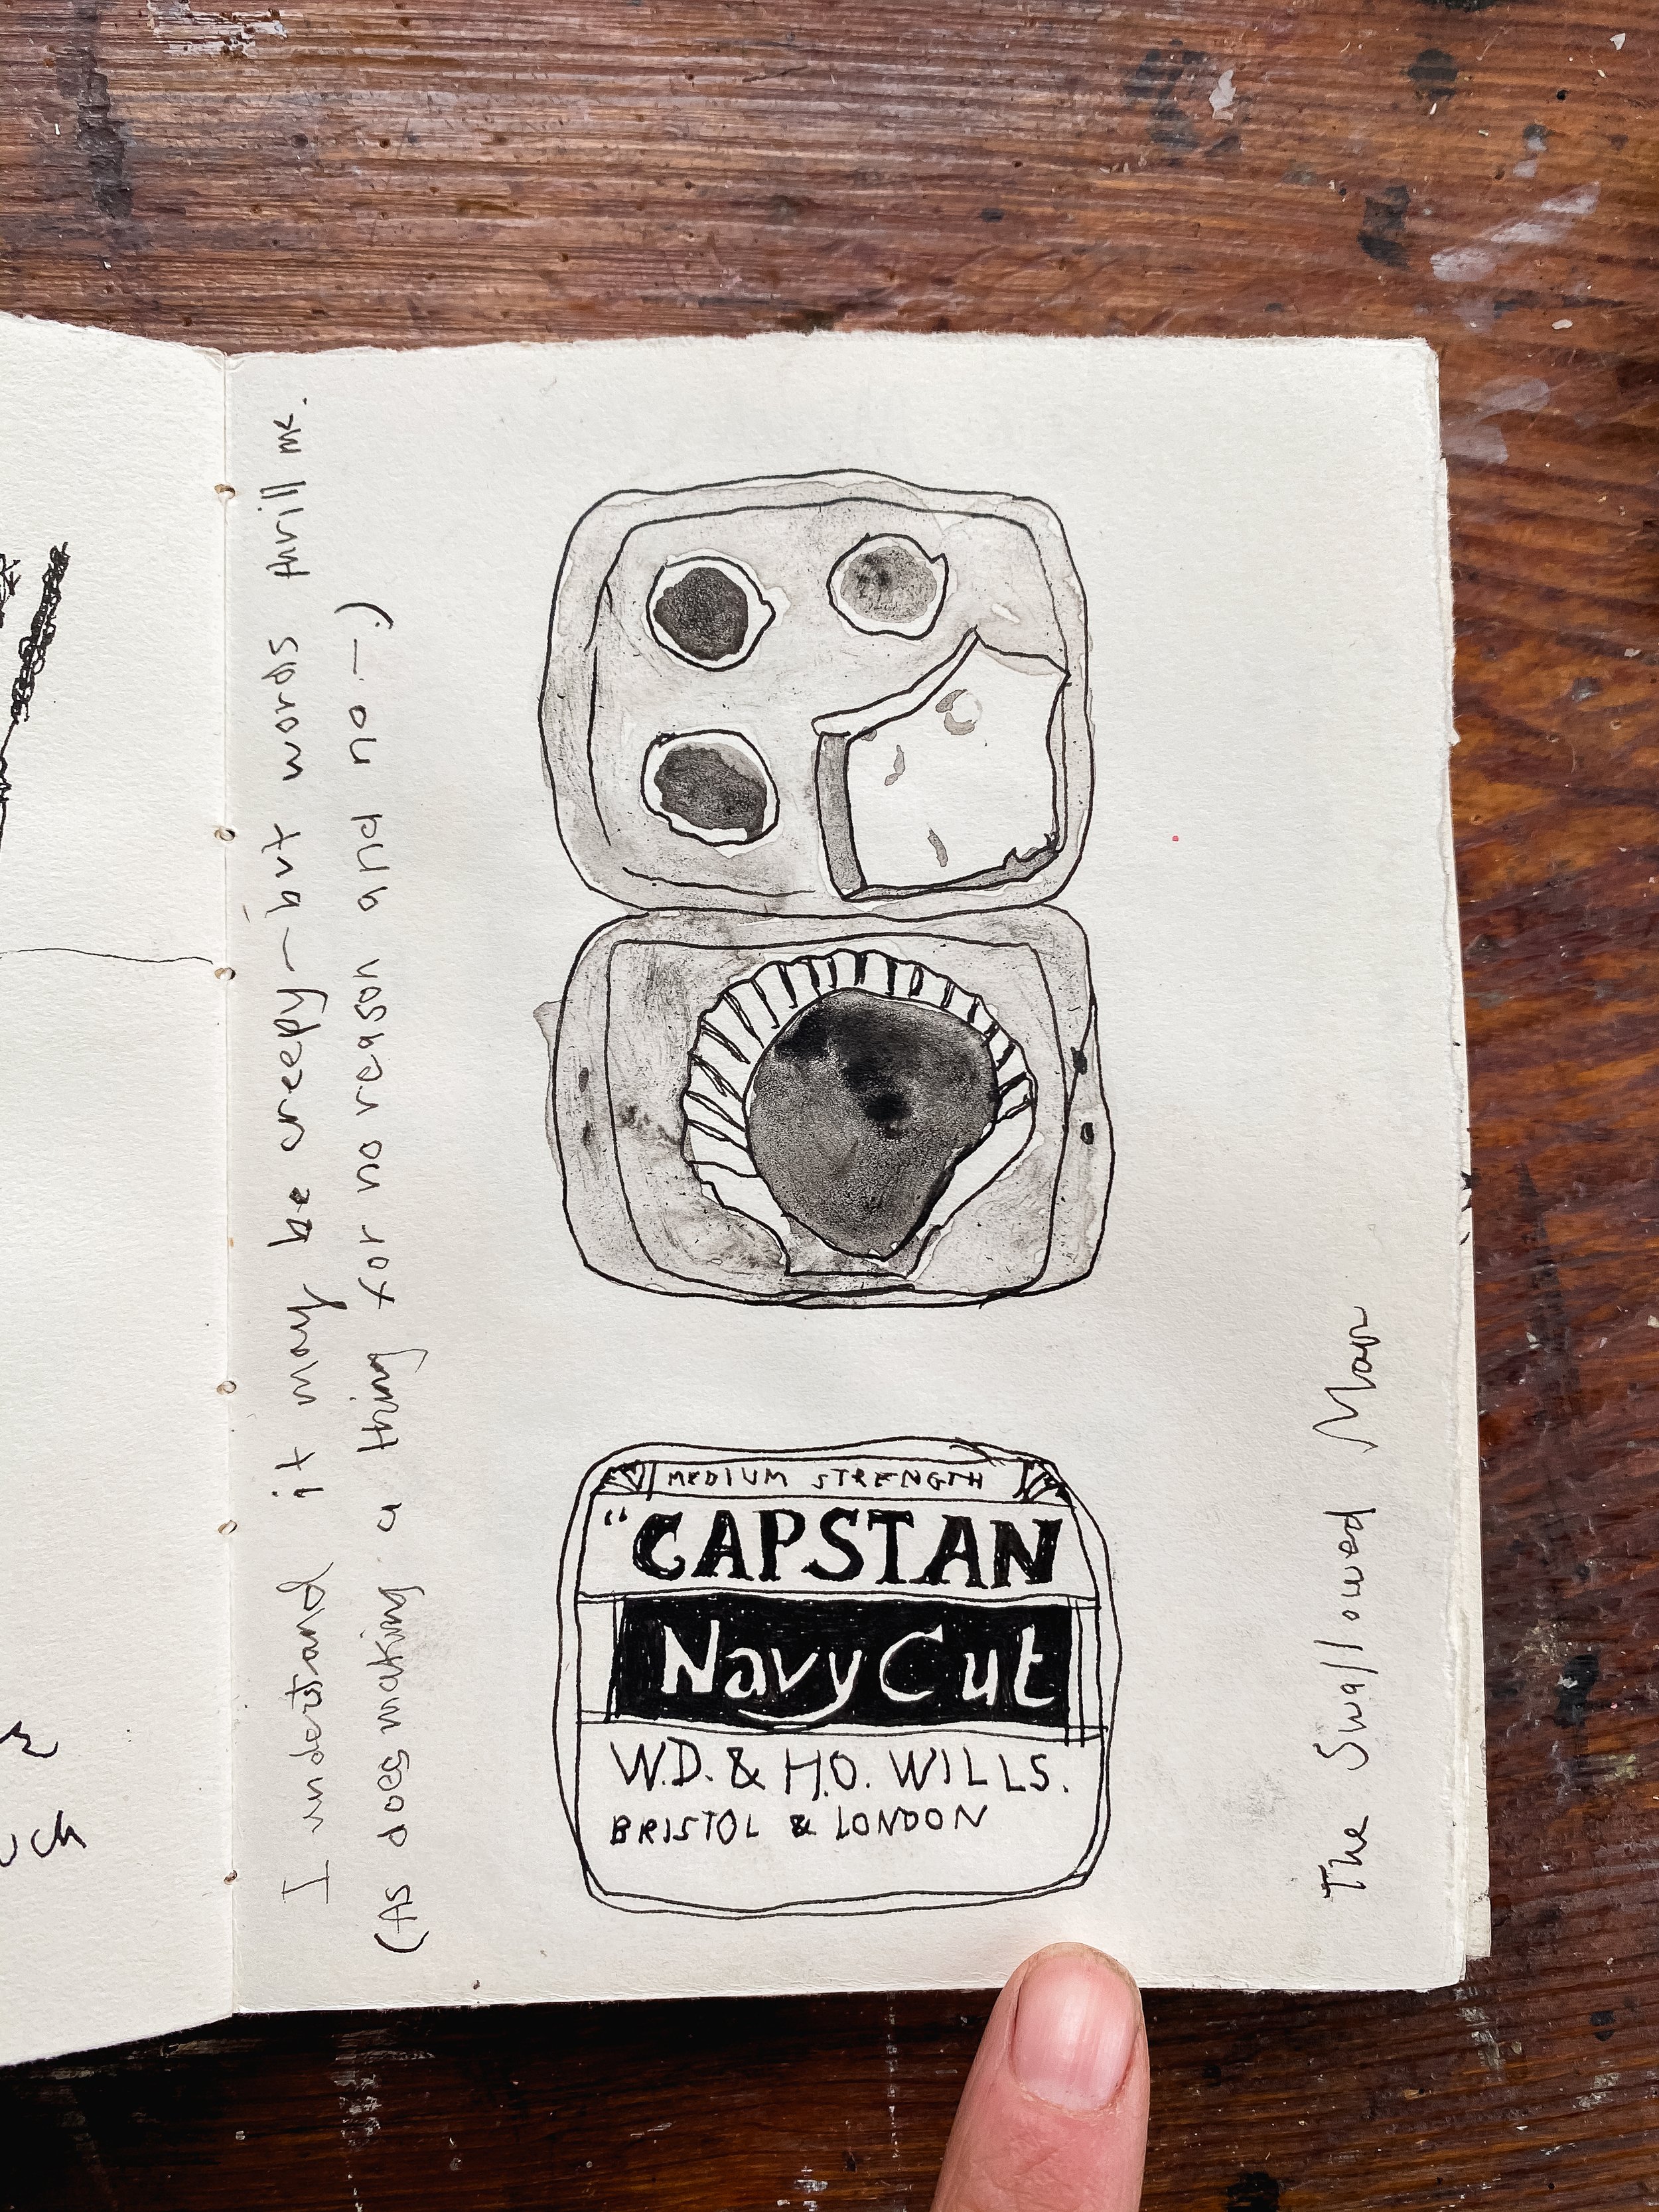 I understand it may be creepy – but words thrill me.
(As does making a thing for no reason and no –.)
MEDIUM STRENGTH
“CAPSTAN
Navy Cut
W.D. & H.O. WILLS.
BRISTOL & LONDON
The Swallowed Man